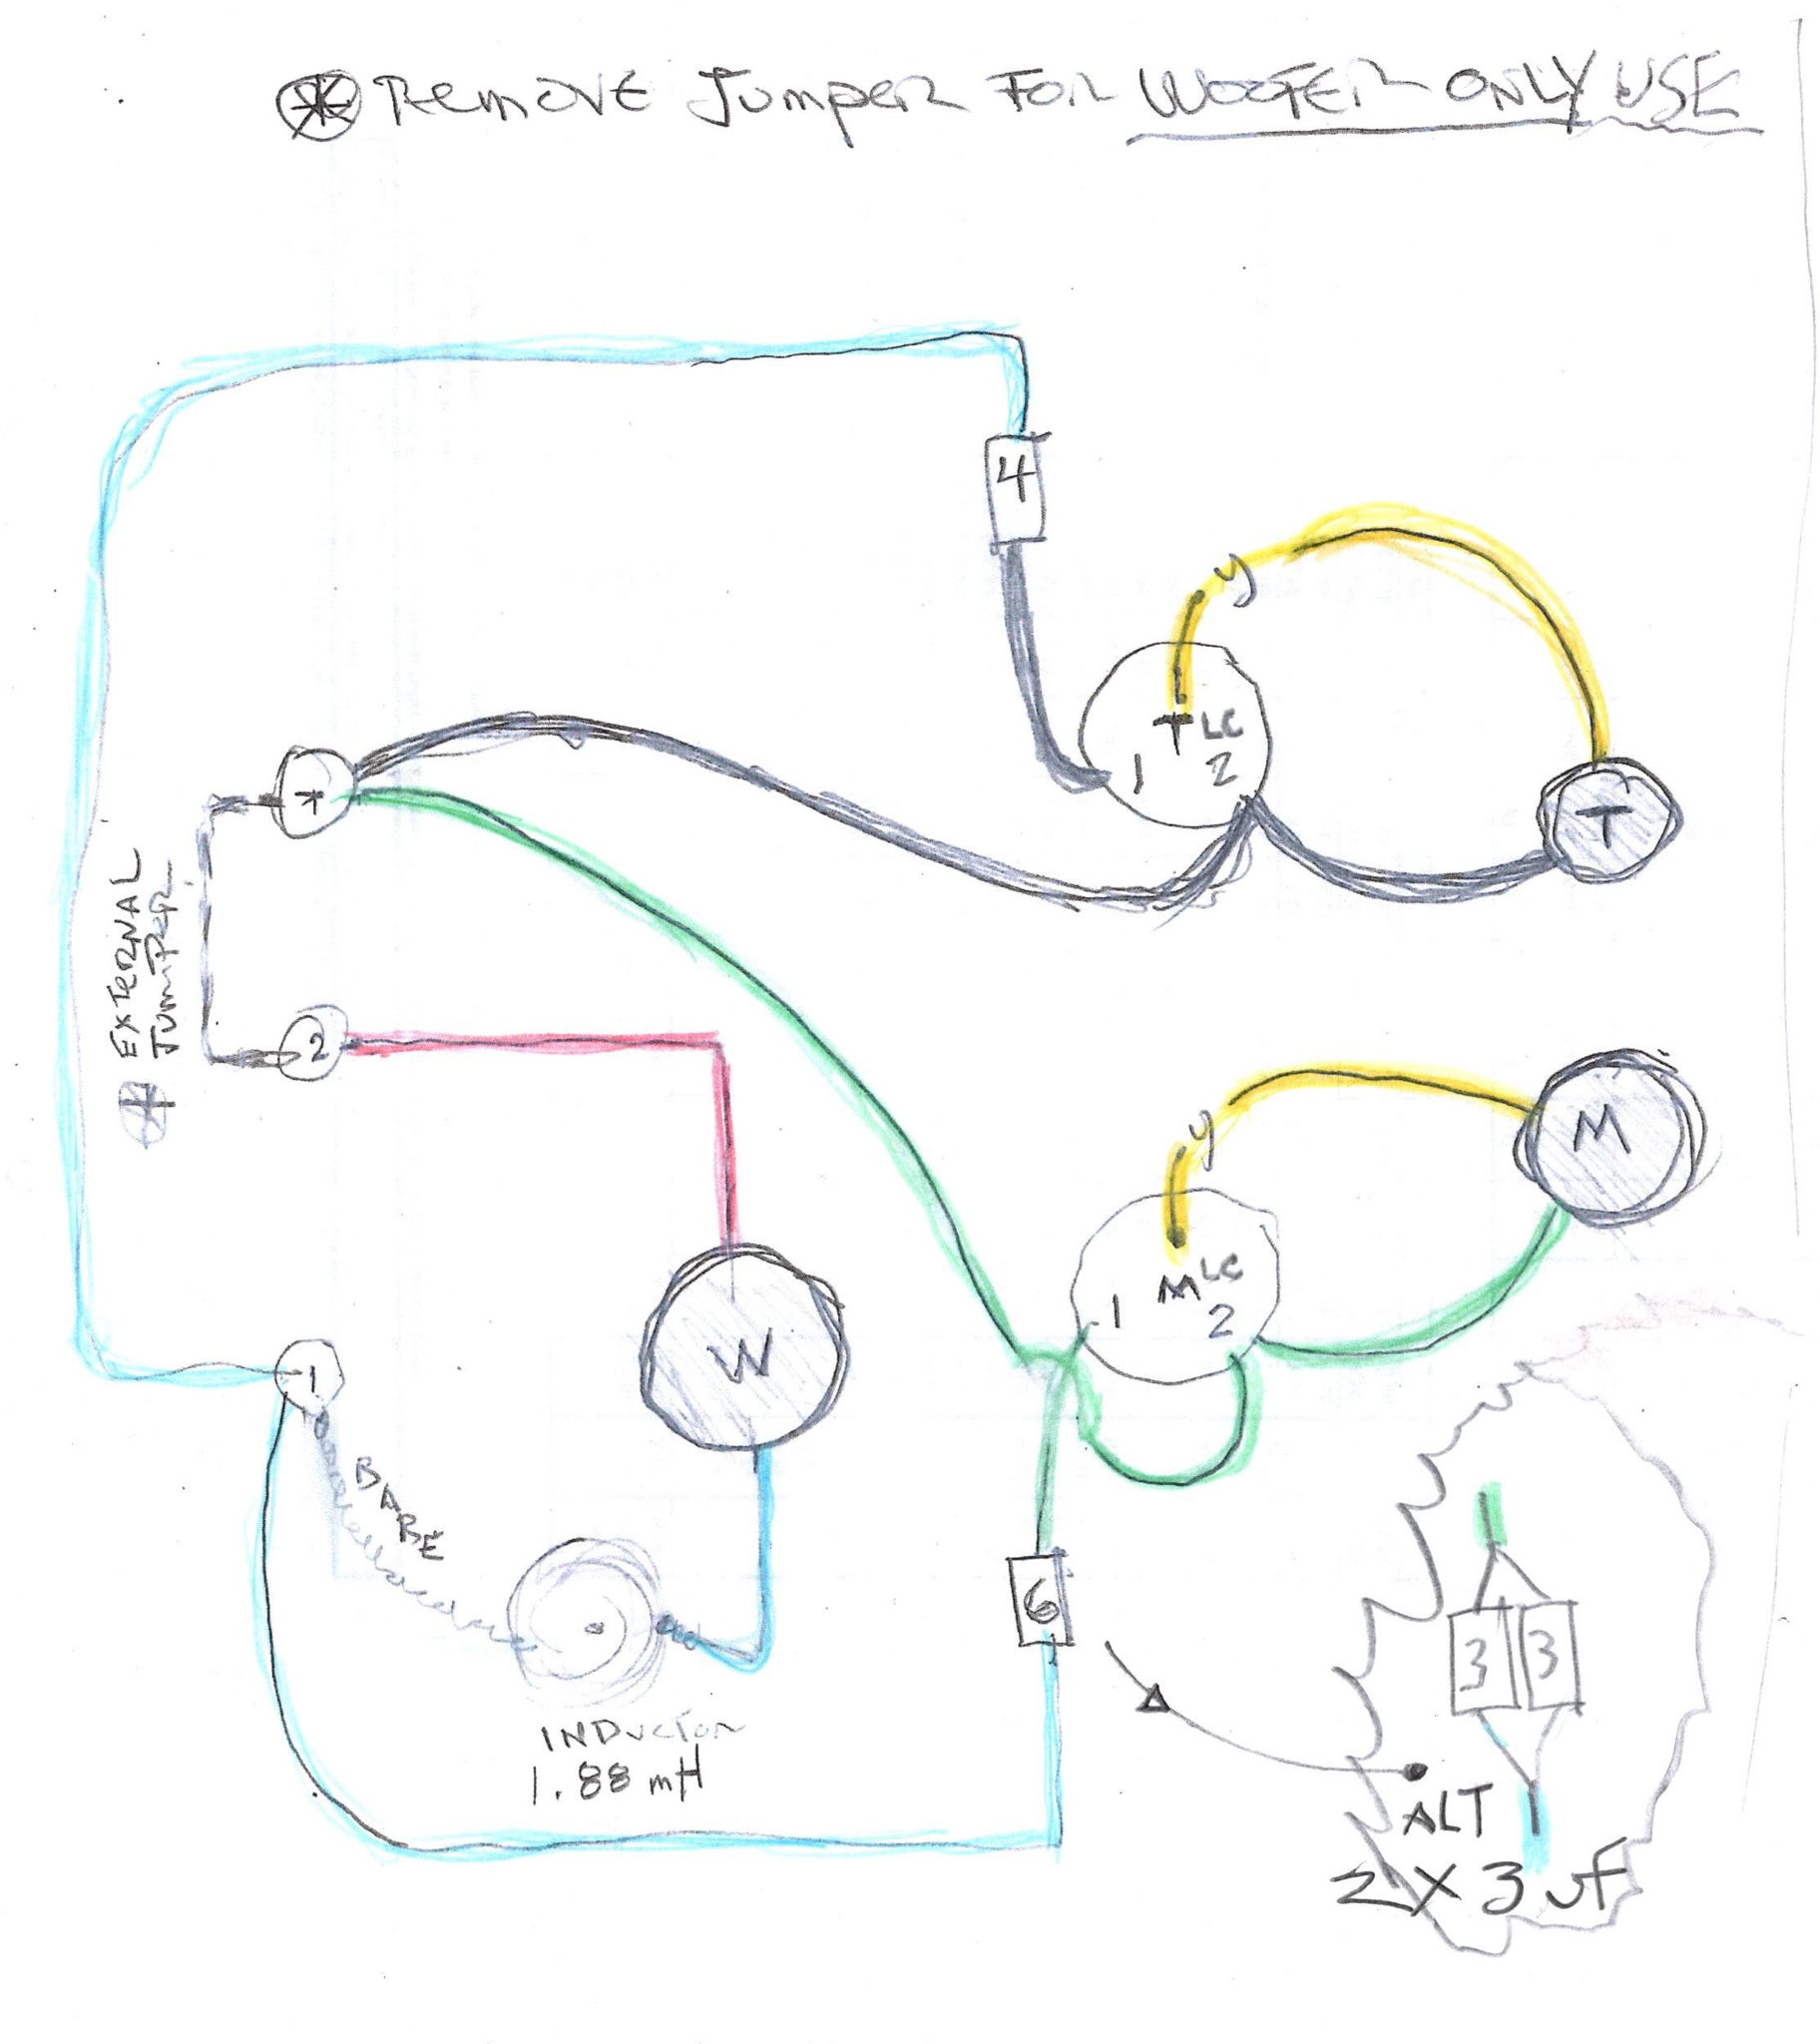 * Remove Jumper For WOOFER ONLY USE
4
y
T LC
1 2
T
T
EXTERNAL
JUMPER
*
2
y
M
M LC
1 2
W
1
BARE
6
3 3
INDUCTOR
1.88 mH
ALT
2 X 3 uf